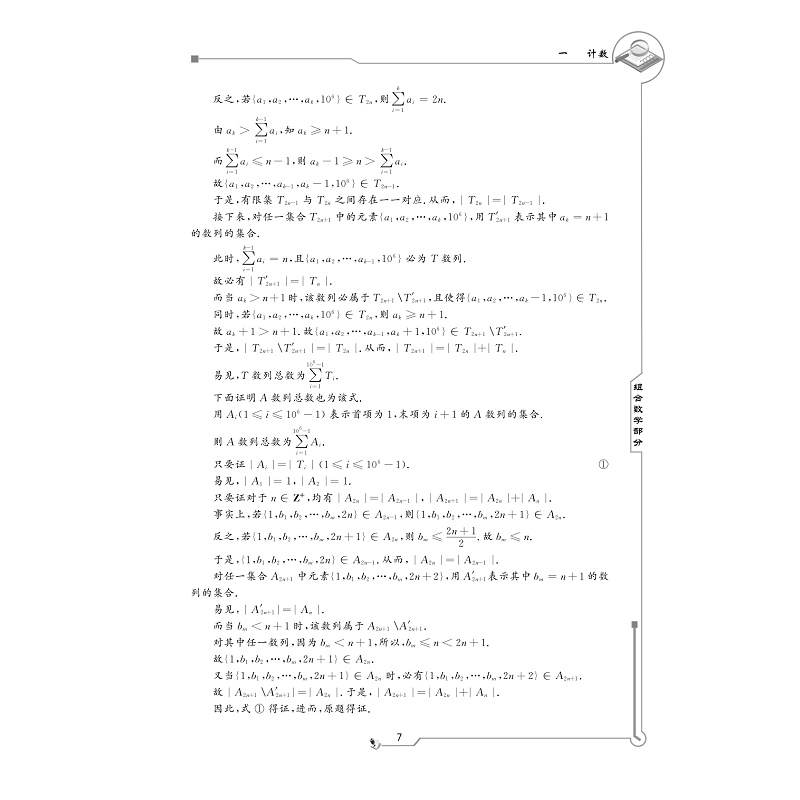 一 计数
反之,若{a₁,a₂,…,aₖ,10⁶}∈T₂ₙ,则∑ᵢ₌₁ᵏ aᵢ=2n.
由 aₖ>∑ᵢ₌₁ᵏ⁻¹ aᵢ,知 aₖ≥n+1.
而∑ᵢ₌₁ᵏ⁻¹ aᵢ≤n-1,则 aₖ-1≥n>∑ᵢ₌₁ᵏ⁻¹ aᵢ.
故{a₁,a₂,…,aₖ₋₁,aₖ-1,10⁶}∈T₂ₙ₋₁.
于是,有限集 T₂ₙ₋₁ 与 T₂ₙ 之间存在一一对应.从而,|T₂ₙ|=|T₂ₙ₋₁|.
接下来,对任一集合 T₂ₙ₊₁ 中的元素{a₁,a₂,…,aₖ,10⁶},用 T′₂ₙ₊₁ 表示其中 aₖ=n+1
的数列的集合.
此时,∑ᵢ₌₁ᵏ⁻¹ aᵢ=n,且{a₁,a₂,…,aₖ₋₁,10⁶}必为 T 数列.
故必有|T′₂ₙ₊₁|=|Tₙ|.
而当 aₖ>n+1 时,该数列必属于 T₂ₙ₊₁\T′₂ₙ₊₁,且使得{a₁,a₂,…,aₖ-1,10⁶}∈T₂ₙ.
同时,若{a₁,a₂,…,aₖ,10⁶}∈T₂ₙ,则 aₖ≥n+1.
故 aₖ+1>n+1.故{a₁,a₂,…,aₖ₋₁,aₖ+1,10⁶}∈T₂ₙ₊₁\T′₂ₙ₊₁.
于是,|T₂ₙ₊₁\T′₂ₙ₊₁|=|T₂ₙ|.从而,|T₂ₙ₊₁|=|T₂ₙ|+|Tₙ|.
易见,T 数列总数为∑ᵢ₌₁^(10⁶-1) Tᵢ.
下面证明 A 数列总数也为该式.
用 Aᵢ(1≤i≤10⁶-1)表示首项为 1,末项为 i+1 的 A 数列的集合.
则 A 数列总数为∑ᵢ₌₁^(10⁶-1) Aᵢ.
只要证|Aᵢ|=|Tᵢ|(1≤i≤10⁶-1). ①
易见,|A₁|=1,|A₂|=1.
只要证对于 n∈Z⁺,均有|A₂ₙ|=|A₂ₙ₋₁|,|A₂ₙ₊₁|=|A₂ₙ|+|Aₙ|.
事实上,若{1,b₁,b₂,…,bₘ,2n}∈A₂ₙ₋₁,则{1,b₁,b₂,…,bₘ,2n+1}∈A₂ₙ.
反之,若{1,b₁,b₂,…,bₘ,2n+1}∈A₂ₙ,则 bₘ≤(2n+1)/2.故 bₘ≤n.
于是,{1,b₁,b₂,…,bₘ,2n}∈A₂ₙ₋₁.从而,|A₂ₙ|=|A₂ₙ₋₁|.
对任一集合 A₂ₙ₊₁ 中元素{1,b₁,b₂,…,bₘ,2n+2},用 A′₂ₙ₊₁ 表示其中 bₘ=n+1 的数
列的集合.
易见,|A′₂ₙ₊₁|=|Aₙ|.
而当 bₘ<n+1 时,该数列属于 A₂ₙ₊₁\A′₂ₙ₊₁,
对其中任一数列,因为 bₘ<n+1,所以,bₘ≤n<2n+1.
故{1,b₁,b₂,…,bₘ,2n+1}∈A₂ₙ.
又当{1,b₁,b₂,…,bₘ,2n+1}∈A₂ₙ 时,必有{1,b₁,b₂,…,bₘ,2n+2}∈A₂ₙ₊₁.
故|A₂ₙ₊₁\A′₂ₙ₊₁|=|A₂ₙ|.于是,|A₂ₙ₊₁|=|A₂ₙ|+|Aₙ|.
因此,式①得证,进而,原题得证.
组合数学部分
7